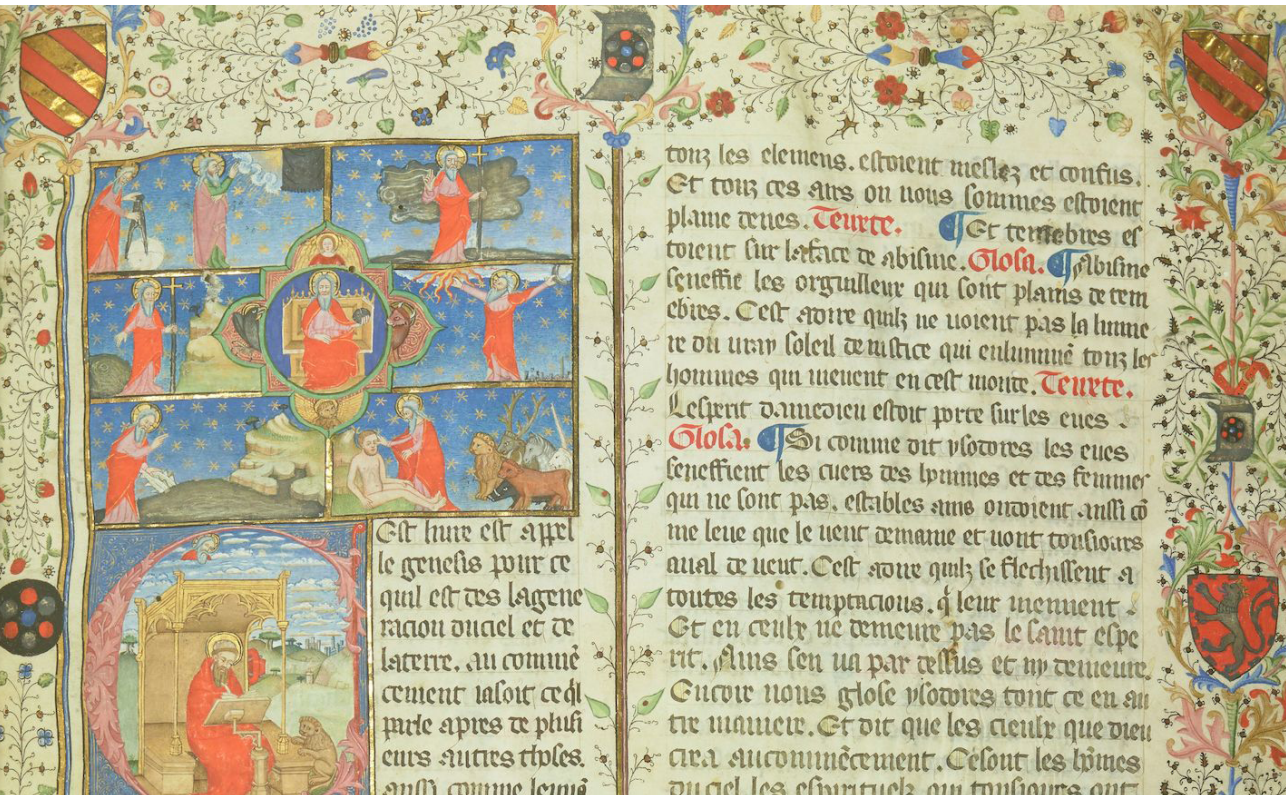 Cest liure est appel
le genesis pour ce
quil est des lagene
racion du ciel et de
laterre. au commē
cement iasoit ce q̄l
parle apres de plusi
eurs autres choses.
aussi comme
touz les elemens. estoient meslez et confus.
Et touz ces airs ou nous sommes estoient
plains denes. Teuxte. ¶ Et tenebres es
toient sur laface de abisme. Glosa. ¶ Abisme
seneffie les orguilleux qui sont plains de ten
ebres. Cest adire quilz ne voient pas la lumie
re du vray soleil de iustice qui enlumine touz les
hommes qui vienent en cest monde. Teuxte.
Lesperit damedieu estoit porte sur les eues.
Glosa. ¶ Si comme dit ysodores les eues
seneffient les cuers des hommes et des femmes
qui ne sont pas. estables ains ondoient aussi cō
me leue que le vent demaine et vont tousiours
aual de vent. Cest adire quilz se flechissent a
toutes les temptacions. q̄ leur viennent.
Et en ceulx ne demeure pas le saint espe
rit. Ains sen va par dessus et ny demeure.
Encoir nous glose ysodores tout ce en au
tre maniere. Et dit que les cieulx que dieu
crea au commēcement. Cesont les hōmes
du ciel les espirituelz qui tousiours ont